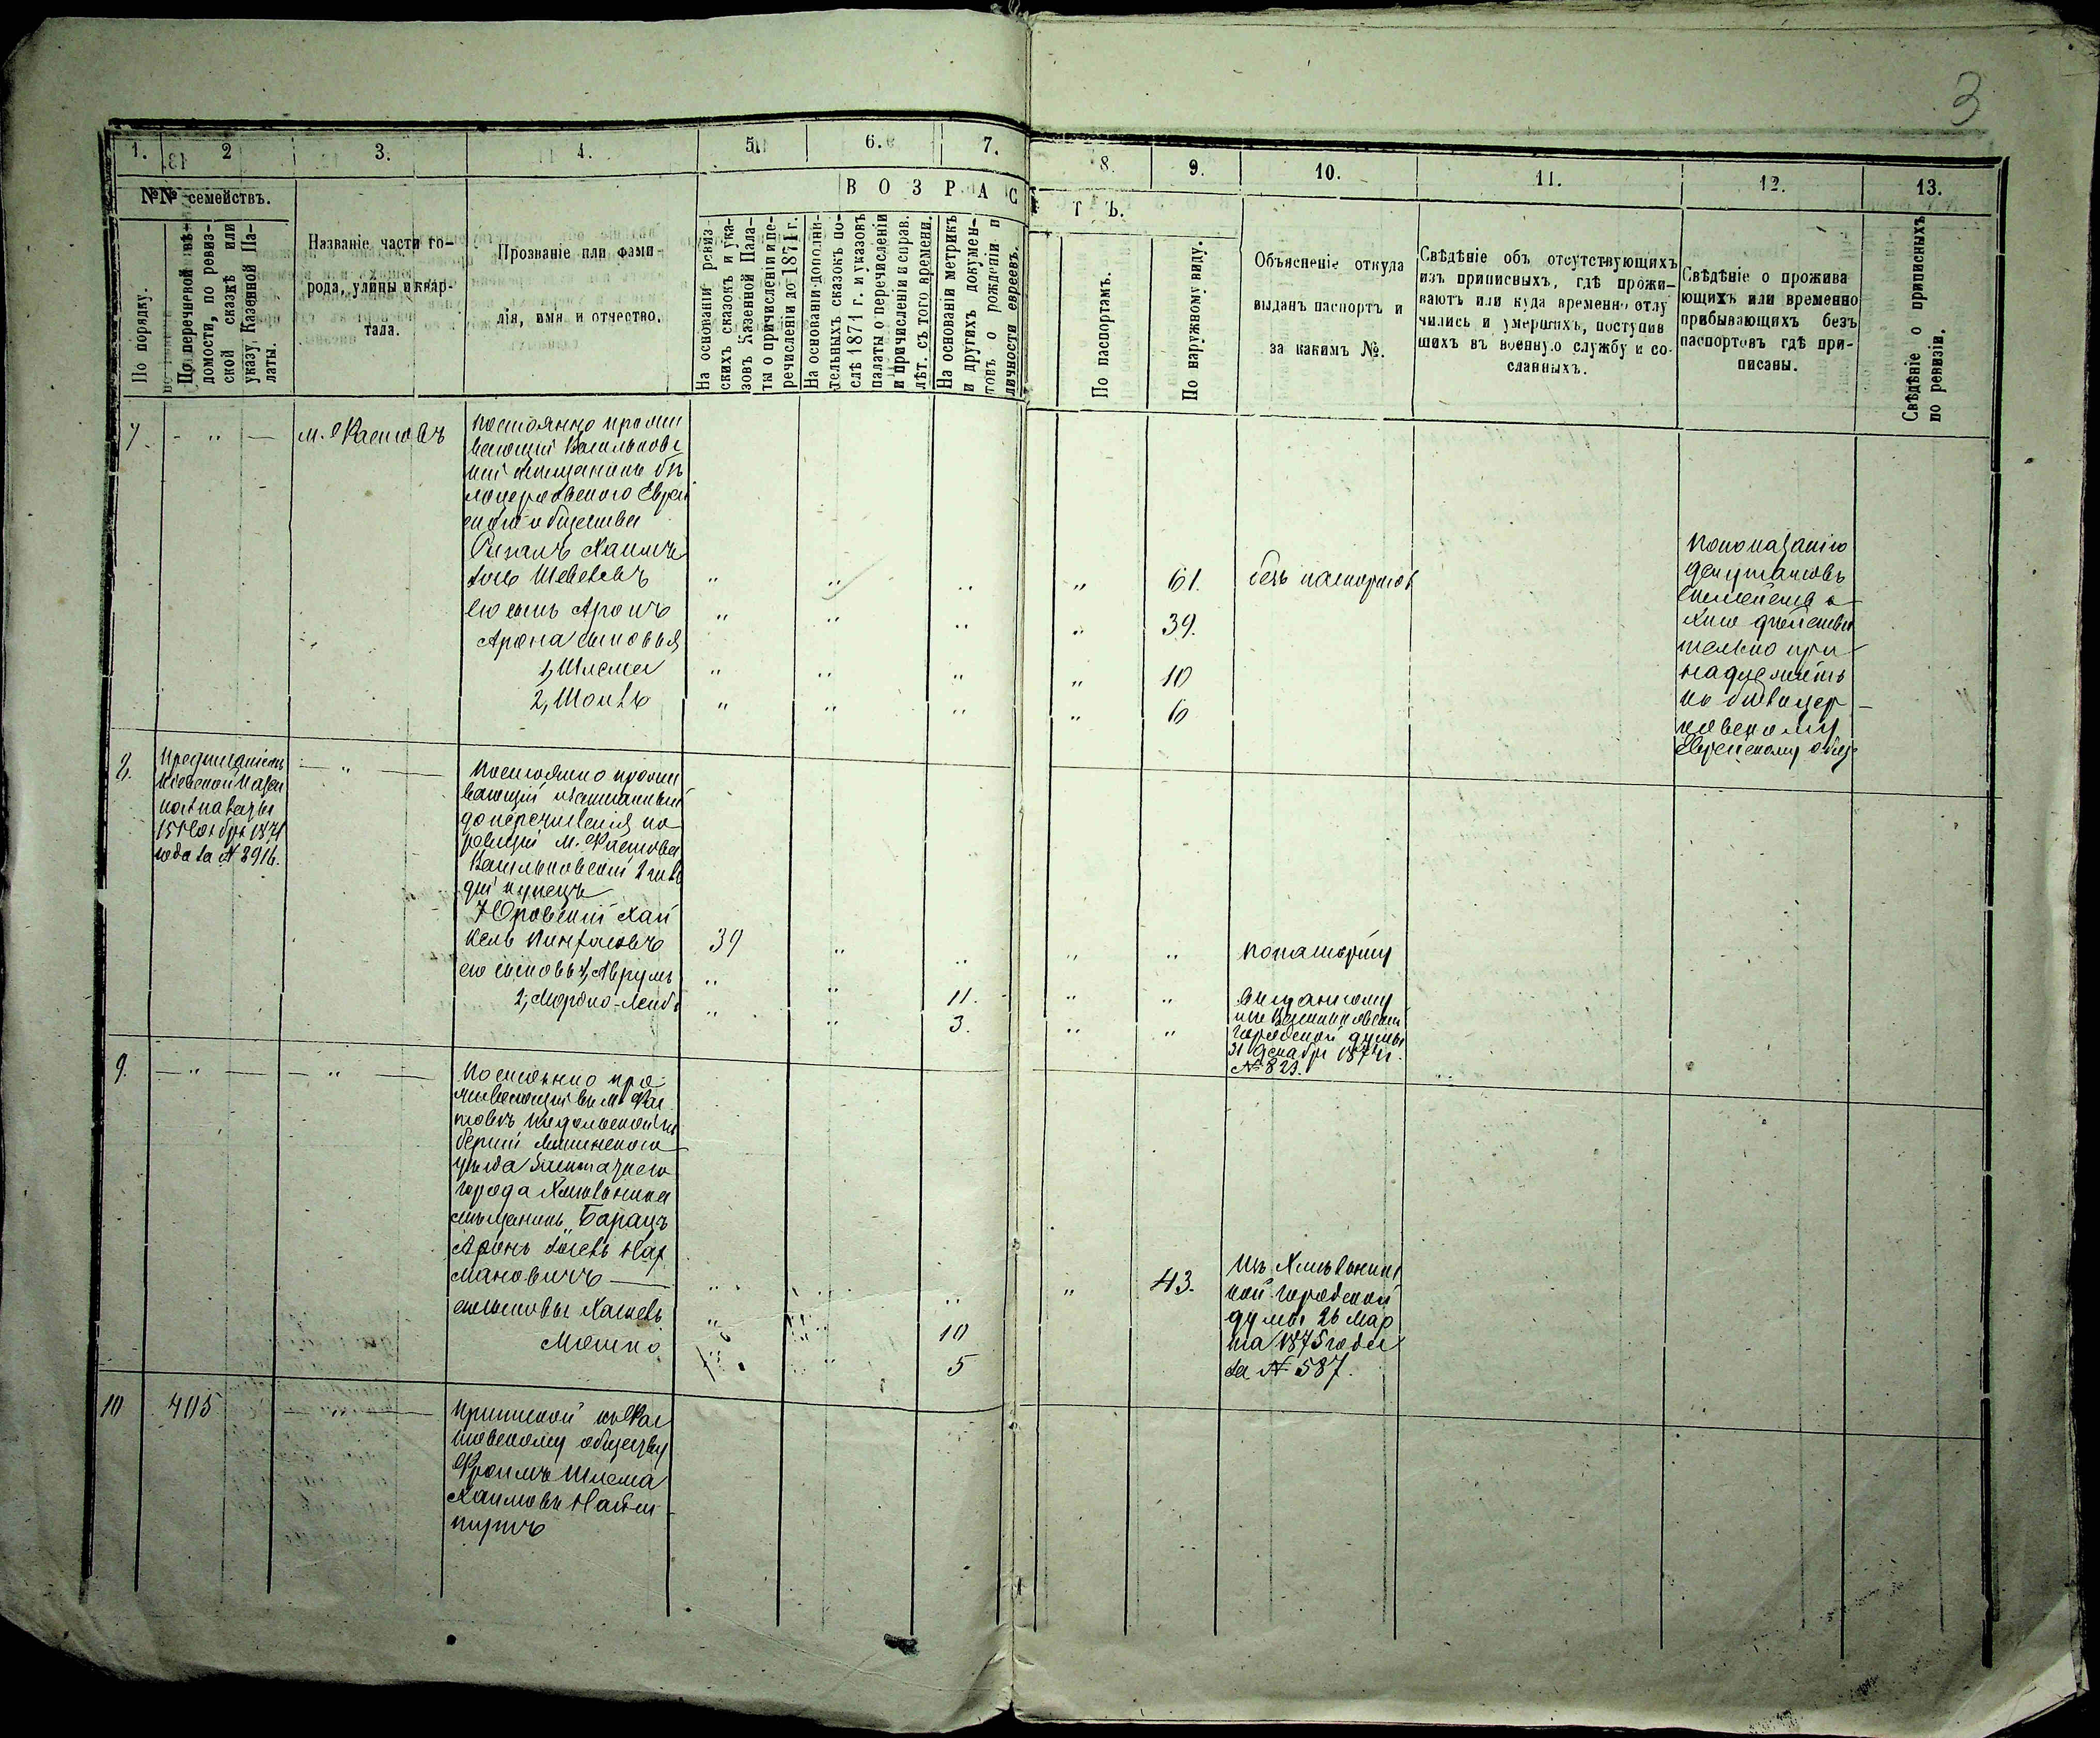 3
1.
2
3.
4.
5.
6.
7.
8.
9.
10.
11.
12.
13.
№№ семействъ.
ВОЗРАС
ТЪ.
По порядку.
По перечневой вѣ-
домости, по ревиз-
ской сказкѣ или
указу Казенной Па-
латы.
Названіе части го-
рода, улицы и квар-
тала.
Прозваніе или фами-
лія, имя и отчество.
На основаніи ревиз-
скихъ сказокъ и ука-
зовъ Казенной Пала-
ты о причисленіи и пе-
речисленіи до 1871 г.
На основаніи дополни-
тельныхъ сказокъ по-
слѣ 1871 г. и указовъ
палаты о перечисленіи
и причисленіи и справ.
лѣт. съ того времени.
На основаніи метрикъ
и другихъ докумен-
товъ о рожденіи и
личности евреевъ.
По паспортамъ.
По наружному виду.
Объясненіе откуда
выданъ паспортъ и
за какимъ №.
Свѣдѣніе объ отсутствующихъ
изъ приписныхъ, гдѣ прожи-
ваютъ или куда временно отлу
чились и умершихъ, поступив
шихъ въ военную службу и со-
сланныхъ.
Свѣдѣніе о прожива
ющихъ или временно
прибывающихъ безъ
паспортовъ гдѣ при-
писаны.
Свѣдѣніе о приписныхъ
по ревизіи.
7. - " — м. Фастовъ
Постоянно прожи
вающій Васильковс
кій мѣщанинъ бѣ
лоцерковского Еврей
скаго общества
Хаимъ
" " " " 61. безъ паспортов
его сынъ Аронъ " " " " 39.
Арона сыновья
1, Шлема " " " " 10
2, " " " " 6
По показанію
депутатовъ
семейство
дѣйстви
тельно при
надлежитъ
къ бѣлоцер-
ковскому
Еврейскому общ
8.
Предписаніемъ
Кіевской Казен
ной палаты
15 Ноября 1874
года за № 8916.
— " —
Постоянно прожи
вающій
до перечисленія по
ревизіи м. Фастова
Васильковскій 2 гиль
діи купецъ
Юровскій Хай
кель 39 " " " "
его сыновья 1, Аврумъ " " 11. " "
2, Мордко-Лейб " " 3. " "
по паспорту
выданному
изъ Васильковской
городской думы
31 Декабря 1874 г.
№ 823.
9. — " — — " —
Постоянно про
живающій въ м. Фас
товѣ Подольской гу
берніи Литинского
уѣзда Заштатнаго
города Хмѣльника
мѣщанинъ Барацъ
Аронъ
мановичъ — " " " " 43.
его сыновья " " 10
Мошко " " 5
Изъ Хмѣльниц
кой городской
думы 26 Мар
та 1875 года
за № 587.
10 405 — " —
Приписной къ Фас
товскому обществу
Фроимъ Шлема
Хаимовъ